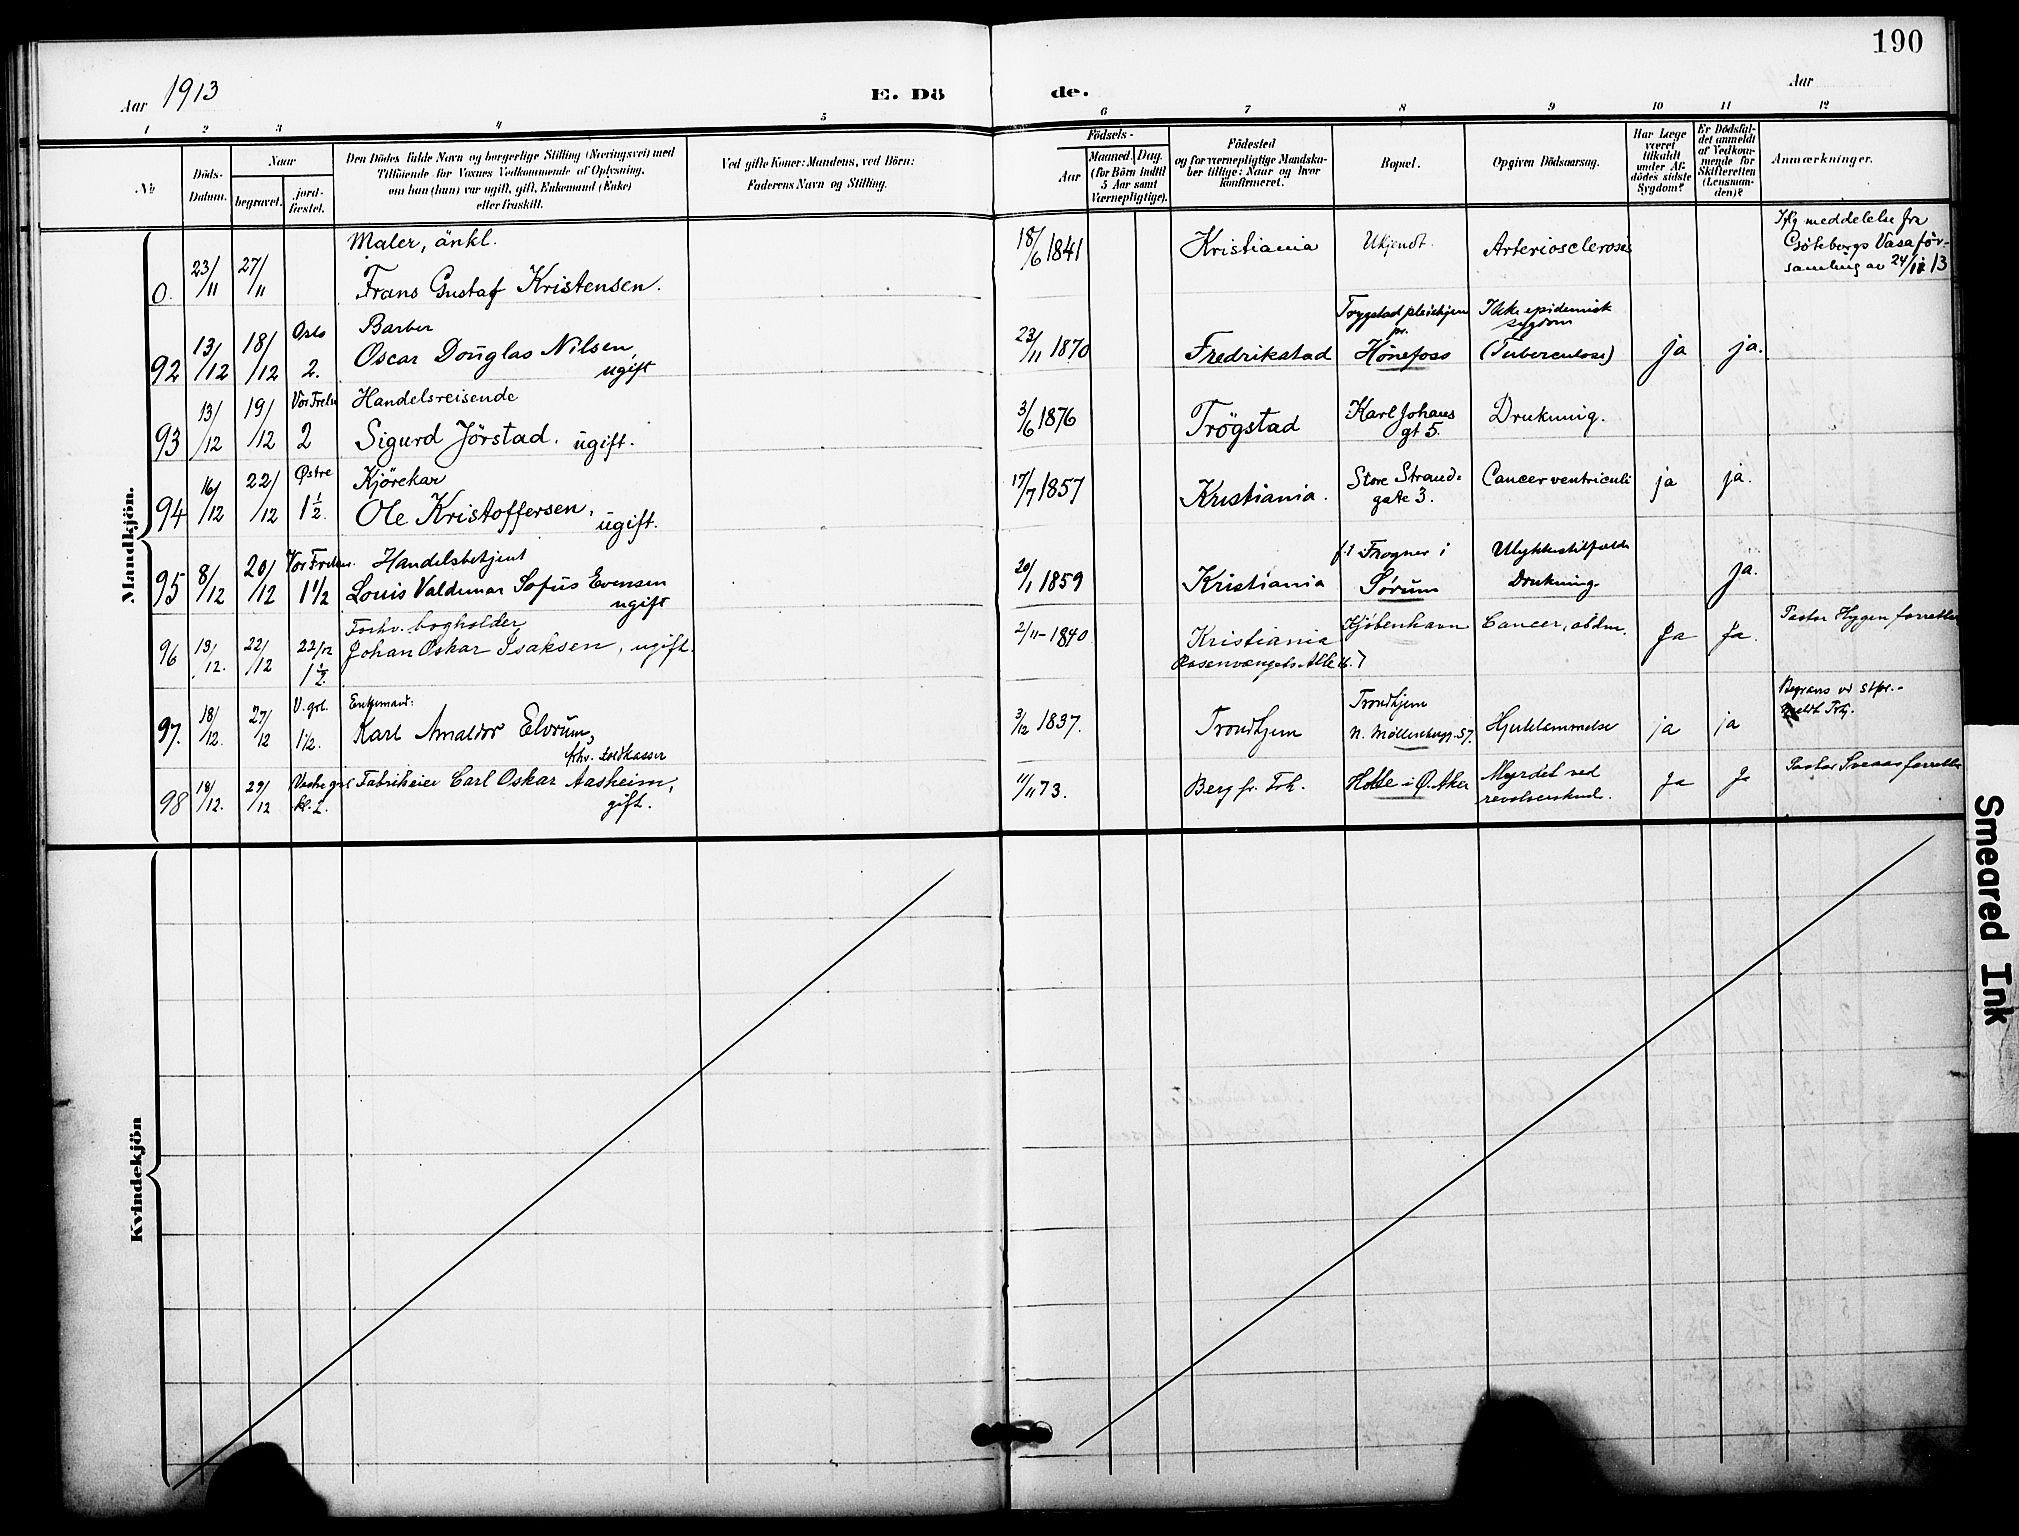 190
Aar 1913
E. Dö
de.
Aar
1 2 3 4 5 6 7 8 9 10 11 12
No
Döds-
Datum.
Naar
begravet.
jord-
fæstet.
Den Dödes fulde Navn og borgerlige Stilling (Næringsvei) med
Tilföiende for Voxnes Vedkommende af Oplysning,
om han (hun) var ugift, gift, Enkemand (Enke)
eller fraskilt.
Ved gifte Koner: Mandens, ved Börn:
Faderens Navn og Stilling.
Födsels-
Aar
Maaned. Dag.
(for Börn indtil
5 Aar samt
Værnepligtige).
Födested
og for værnepligtige Mandska-
ber tillige: Naar og hvor
konfirmeret.
Bopæl.
Opgiven Dödsaarsag.
Har Læge
været
tilkaldt
under Af-
dödes sidste
Sygdom?
Er Dödsfal-
det anmeldt
af Vedkom-
mende for
Skifteretten
(Lensman-
den)?
Anmærkninger.
Mandkjön.
0. 23/11 27/11
Maler, änkl.
Frans Gustaf Kristensen.
18/6 1841
Kristiania
Ukjendt.
Arteriosclerosis
Ifg meddelelse fra
Göteborgs Vasaför-
samling av 24/11 13
92 13/12 18/12
Oslo
2.
Barber
Oscar Douglas Nilsen,
ugift
23/11 1870
Fredrikstad
Trygstad pleiehjem
pr.
Hönefoss
Ikke epidemisk
sygdom
(Tuberculose)
ja
ja.
93 13/12 19/12
Vor Frelse
2
Handelsreisende
Sigurd Jörstad. ugift.
3/6 1876
Trögstad
Karl Johans
gt 5.
Drukning.
94 16/12 22/12
Østre
1 1/2.
Kjörekar
Ole Kristoffersen,
ugift.
17/7 1857
Kristiania.
Store Strand-
gate 3.
Cancer ventriculi
ja
ja.
95 8/12 20/12
Vor Frelsers.
1 1/2
Handelsbetjent
Louis Valdemar Sofus Evensen
ugift
20/1 1859
Kristiania
Frogner i
Sørum
Ulykkestilfælde
Drukning.
ja.
96 13/12. 22/12 22/12
1 1/2.
Forhv. bogholder
Johan Oskar Isaksen, ugift.
2/11-1840
Kristiania
Rosenvængets Allé 16.
Kjöbenhavn
Cancer, abdm.
Ja
Ja.
Pastor Hygen forretter
97. 18/12. 27/12
V. grl.
1 1/2.
Enkemand:
Karl Arnoldor Elvrum,
fhv. toldkasser
3/12 1837.
Trondhjem
Trondhjem
n. Möllenbergg. 57.
Hjertelammelse
ja
ja
98 18/12. 29/12
Vestre grl
kl. 2.
Fabrikeier Carl Oskar Aasheim,
gift.
11/11 73.
Berg pr. Frh.
Holte i Ø. Aker
Myrdet ved
revolverskud.
Ja
Ja
Pastor Sveaas forretter
Kvindekjön
Smeared Ink